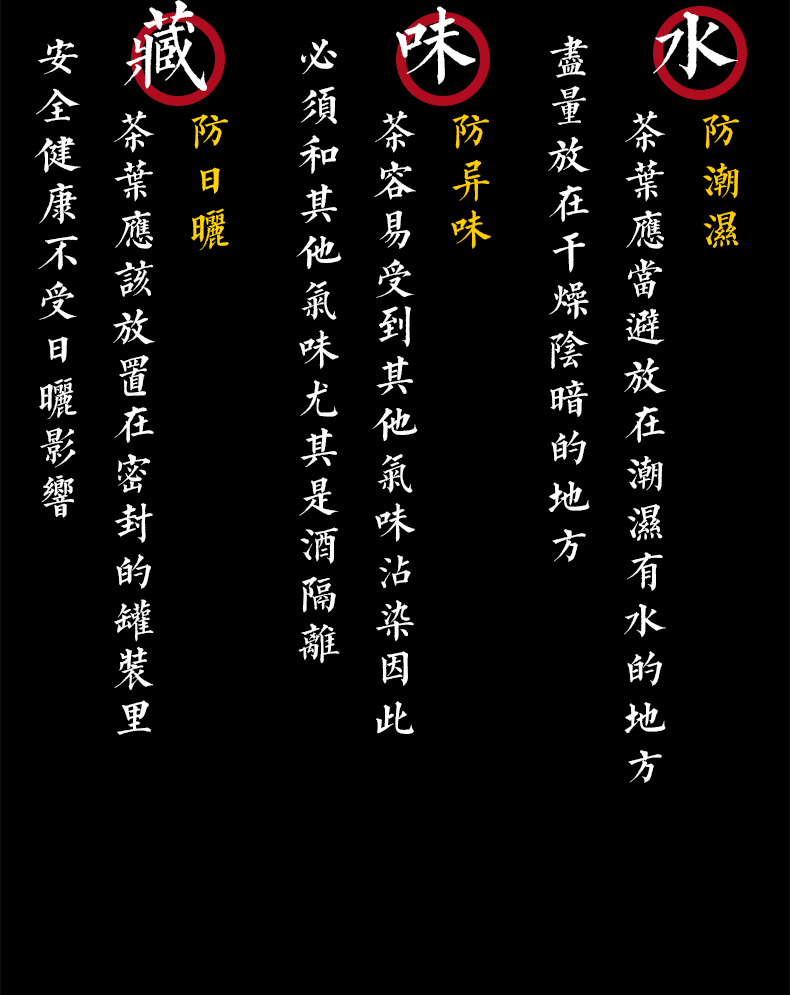 水
防潮濕
茶葉應當避放在潮濕有水的地方
盡量放在干燥陰暗的地方
味
防异味
茶容易受到其他氣味沾染因此
必須和其他氣味尤其是酒隔離
藏
防日曬
茶葉應該放置在密封的罐裝里
安全健康不受日曬影響